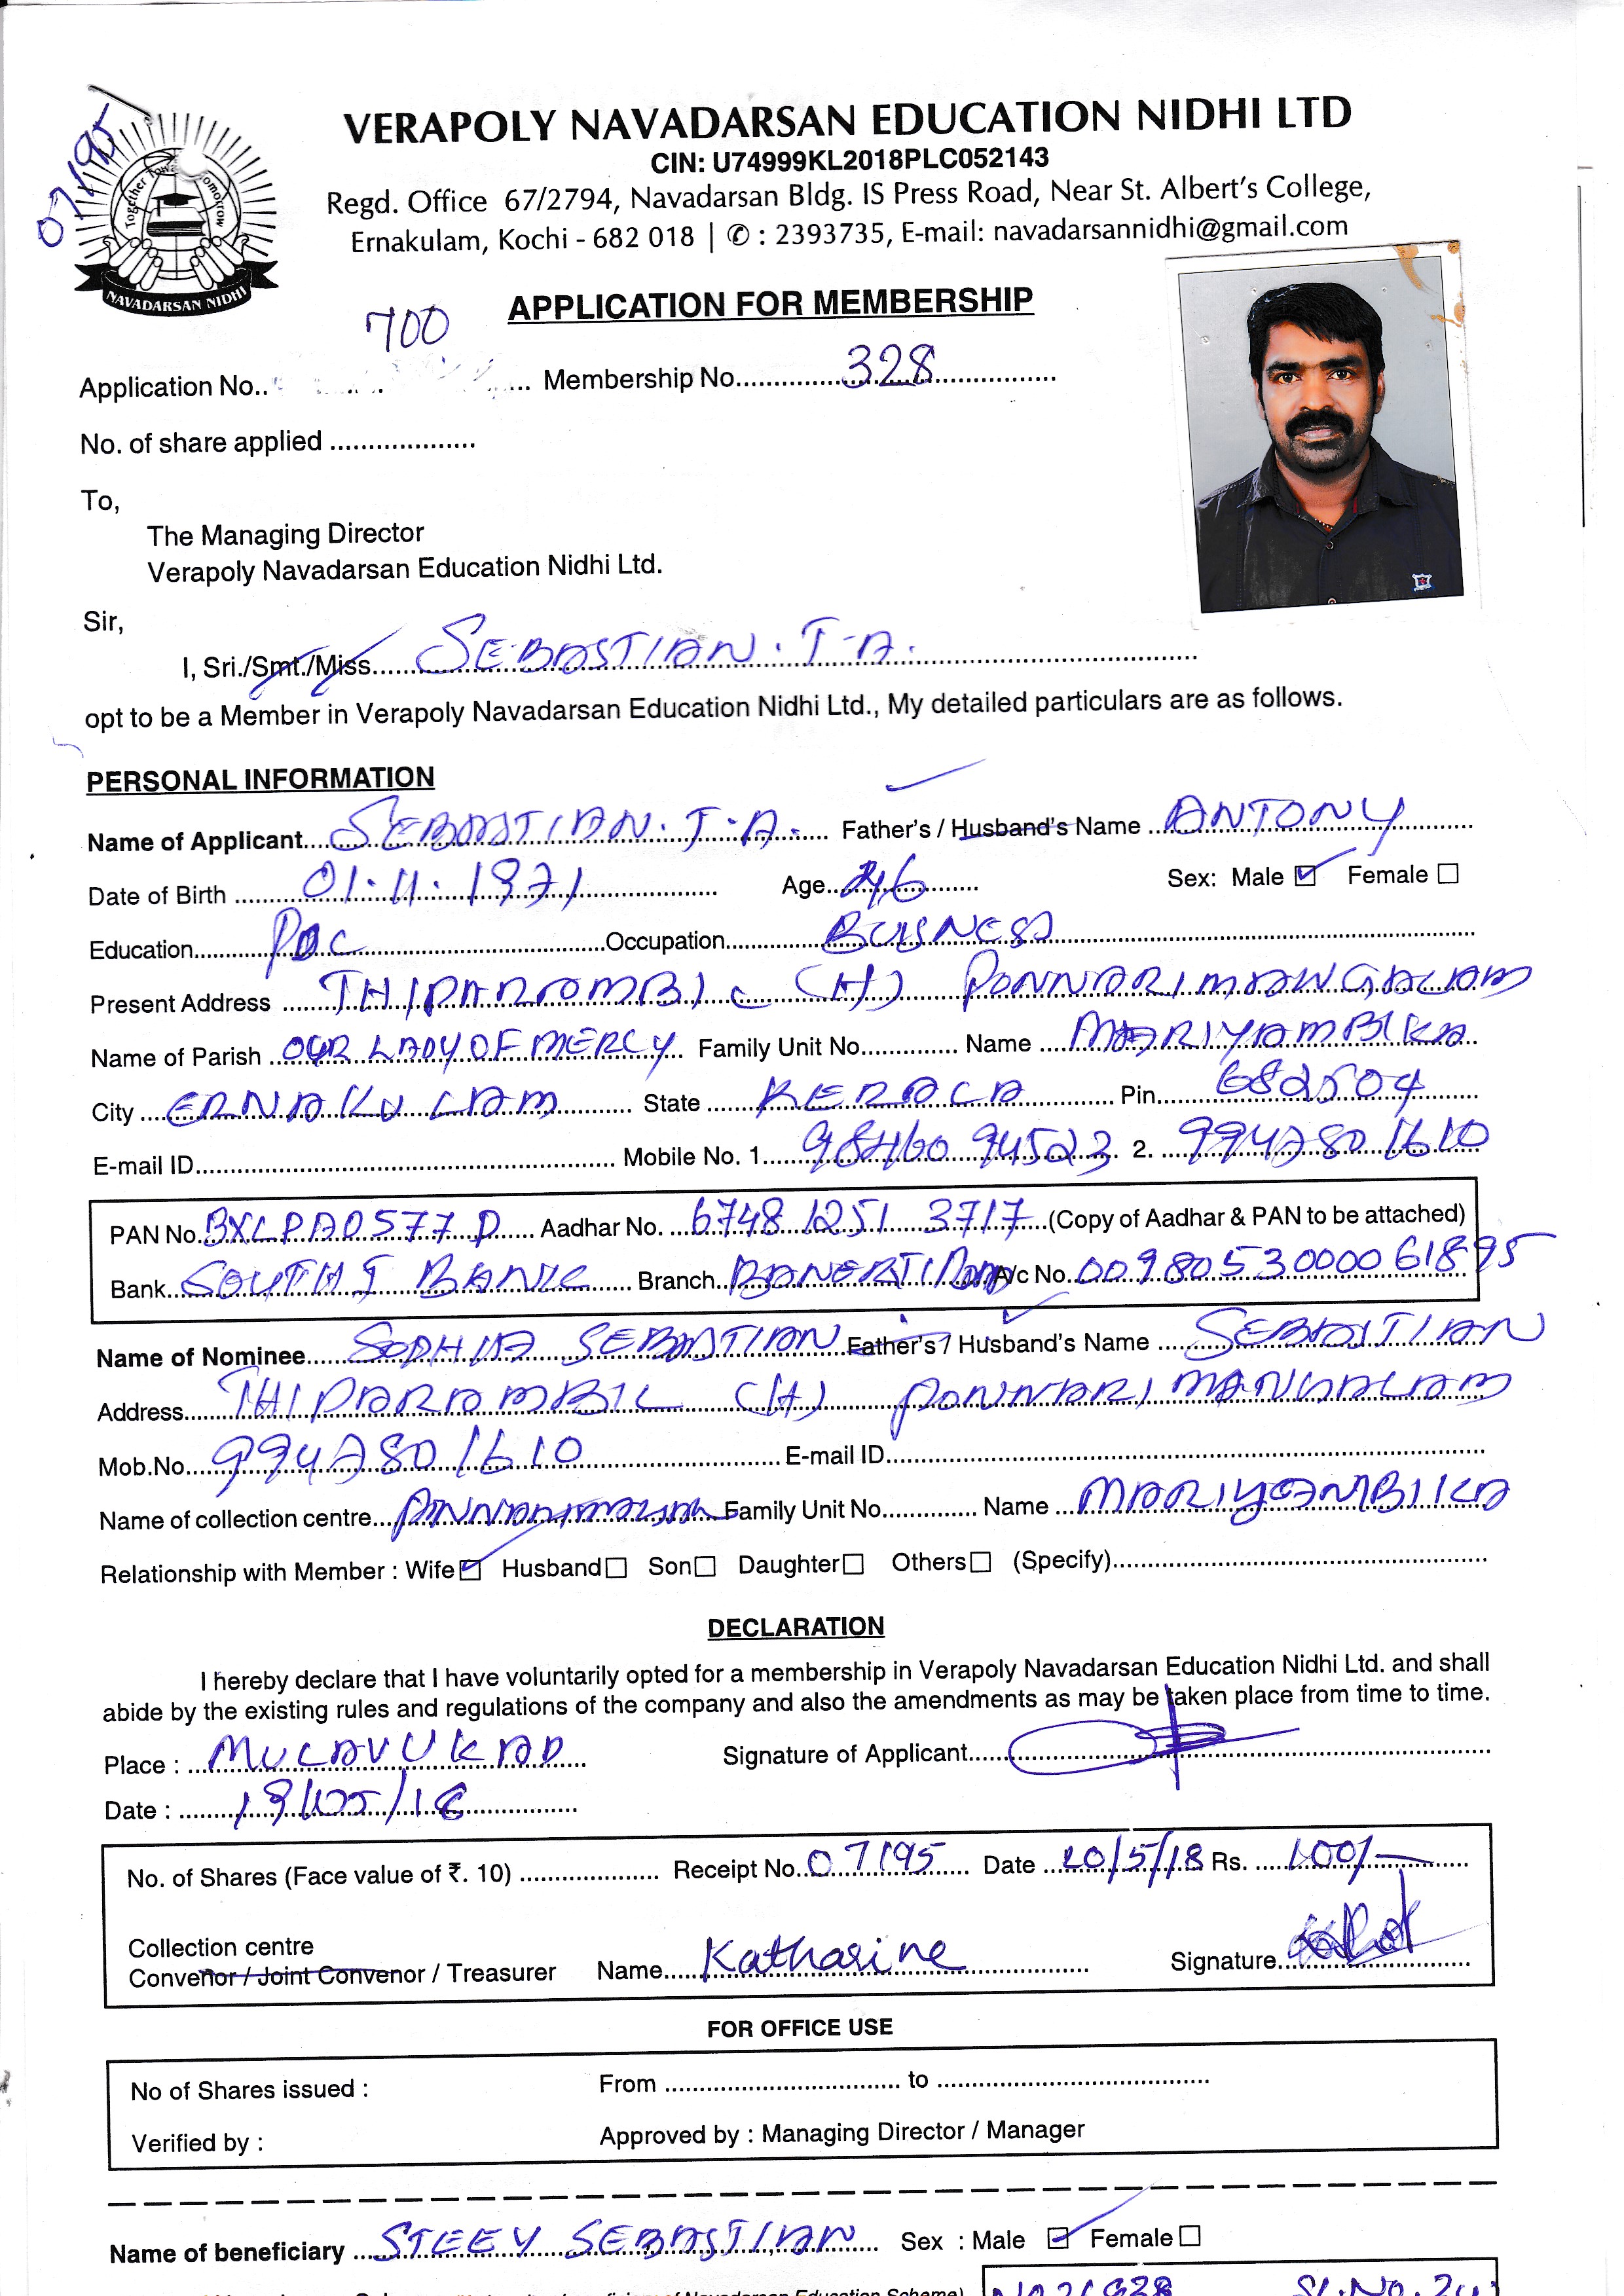 07195
Together Towards Tomorrow
NAVADARSAN NIDHI
VERAPOLY NAVADARSAN EDUCATION NIDHI LTD
CIN: U74999KL2018PLC052143
Regd. Office 67/2794, Navadarsan Bldg. IS Press Road, Near St. Albert's College,
Ernakulam, Kochi - 682 018 | ✆ : 2393735, E-mail: navadarsannidhi@gmail.com
APPLICATION FOR MEMBERSHIP
700
Application No.. ... Membership No. 328
No. of share applied ...................
To,
The Managing Director
Verapoly Navadarsan Education Nidhi Ltd.
Sir,
I, Sri./Smt./Miss SEBASTIAN. T.A.
opt to be a Member in Verapoly Navadarsan Education Nidhi Ltd., My detailed particulars are as follows.
PERSONAL INFORMATION
Name of Applicant SEBASTIAN. T.A. Father's / Husband's Name ANTONY
Date of Birth 01.11.1971 Age 46 Sex: Male ☑ Female ☐
Education PDC Occupation BUISNESS
Present Address THIPARAMBIL (H) PONNARIMANGALAM
Name of Parish OUR LADY OF MERCY Family Unit No. Name MARIYAMBIKA
City ERNAKULAM State KERALA Pin 682504
E-mail ID Mobile No. 1. 9846094523 2. 9947801610
PAN No. BXLPA0577P Aadhar No. 6748 1251 3717 (Copy of Aadhar & PAN to be attached)
Bank SOUTH I BANK Branch A/c No. 0098053000061895
Name of Nominee SOPHIA SEBASTIAN Father's / Husband's Name SEBASTIAN
Address THIPARAMBIL (H) PONNARIMANGALAM
Mob.No. 9947801610 E-mail ID
Name of collection centre Family Unit No. Name MARIYAMBIKA
Relationship with Member : Wife ☑ Husband ☐ Son ☐ Daughter ☐ Others ☐ (Specify)
DECLARATION
I hereby declare that I have voluntarily opted for a membership in Verapoly Navadarsan Education Nidhi Ltd. and shall
abide by the existing rules and regulations of the company and also the amendments as may be taken place from time to time.
Place : MULAVUKAD Signature of Applicant
Date : 19/05/18
No. of Shares (Face value of ₹. 10) Receipt No. 07195 Date 20/5/18 Rs. 100/-
Collection centre
Convenor / Joint Convenor / Treasurer Name Katharine Signature
FOR OFFICE USE
No of Shares issued : From to
Verified by : Approved by : Managing Director / Manager
Name of beneficiary STEEV SEBASTIAN Sex : Male ☑ Female ☐